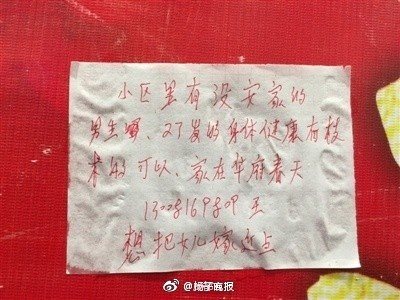 小区里有没安家的
男生啊、27岁的身体健康有技
术的可以、家在华府春天
想把女儿嫁近点
@扬子晚报